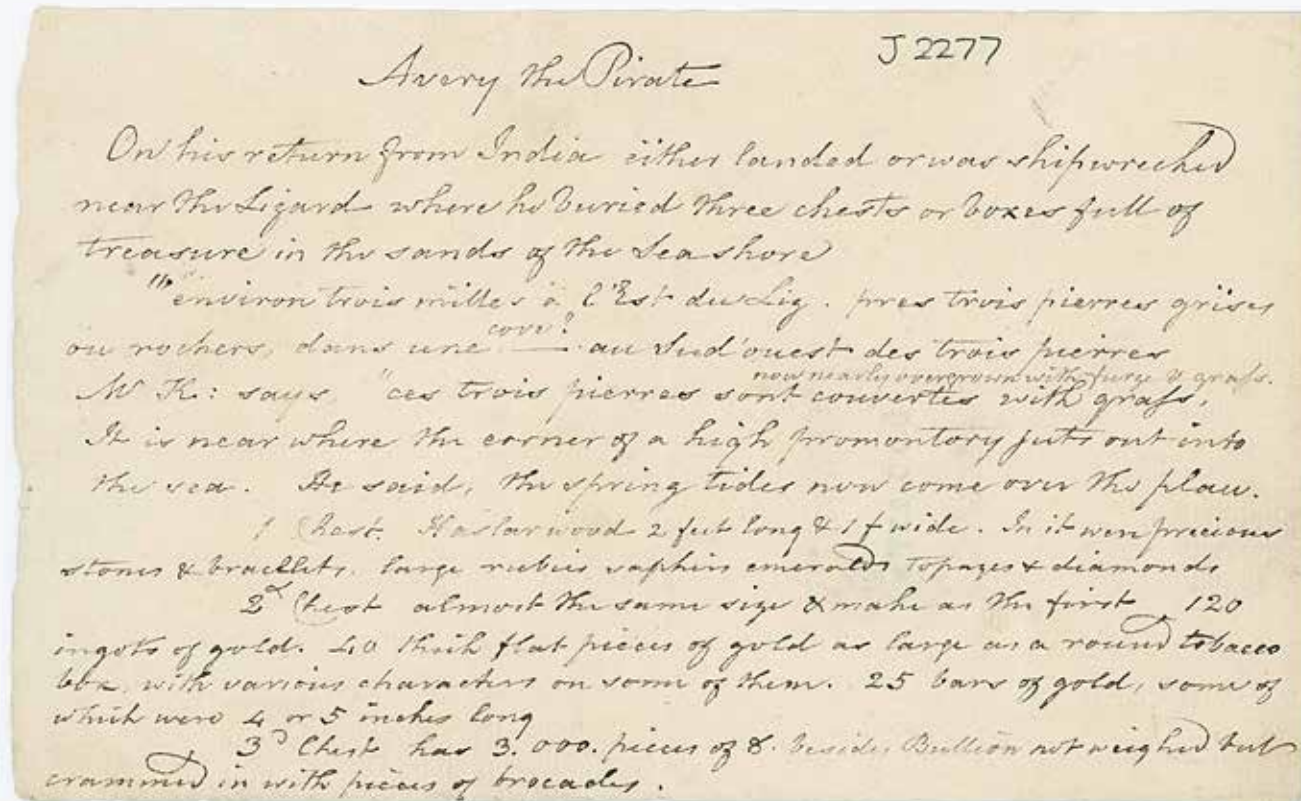 J 2277
Avery the Pirate
On his return from India either landed or was shipwrecked
near the Lizard where he buried three chests or boxes full of
treasure in the sands of the Sea shore
"environ trois milles à l'Est du Lig. pres trois pierres grises
ou rochers, dans une cove? —— au Sud'ouest des trois pierres
now nearly overgrown with furze & grass.
Mr K: says, "ces trois pierres sont couvertes with grass,
It is near where the corner of a high promontory juts out into
the sea. He said, the spring tides now come over the place.
1 Chest. Haslarwood 2 feet long & 1 f wide. In it were precious
stones & bracelets, large rubies saphirs emeralds Topazes & diamonds
2d Chest almost the same size & make as the first 120
ingots of gold. 40 thick flat pieces of gold as large as a round tobacco
box, with various characters on some of them. 25 bars of gold, some of
which were 4 or 5 inches long
3d Chest has 3.000. pieces of 8. besides Bullion not weighed but
crammed in with pieces of brocades.